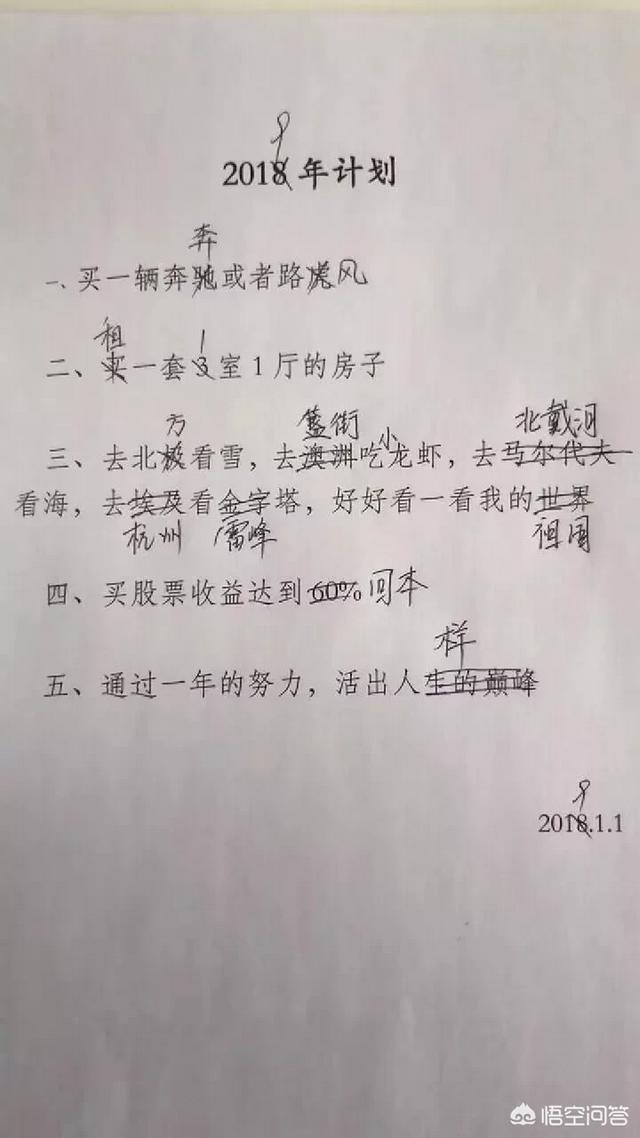 9
2018年计划
奔
一、买一辆奔驰或者路虎风
租 1
二、买一套3室1厅的房子
方 簋街 小 北戴河
三、去北极看雪，去澳洲吃龙虾，去马尔代夫
看海，去埃及看金字塔，好好看一看我的世界
杭州 雷峰 祖国
四、买股票收益达到60%回本
样
五、通过一年的努力，活出人生的巅峰
9
2018.1.1
悟空问答